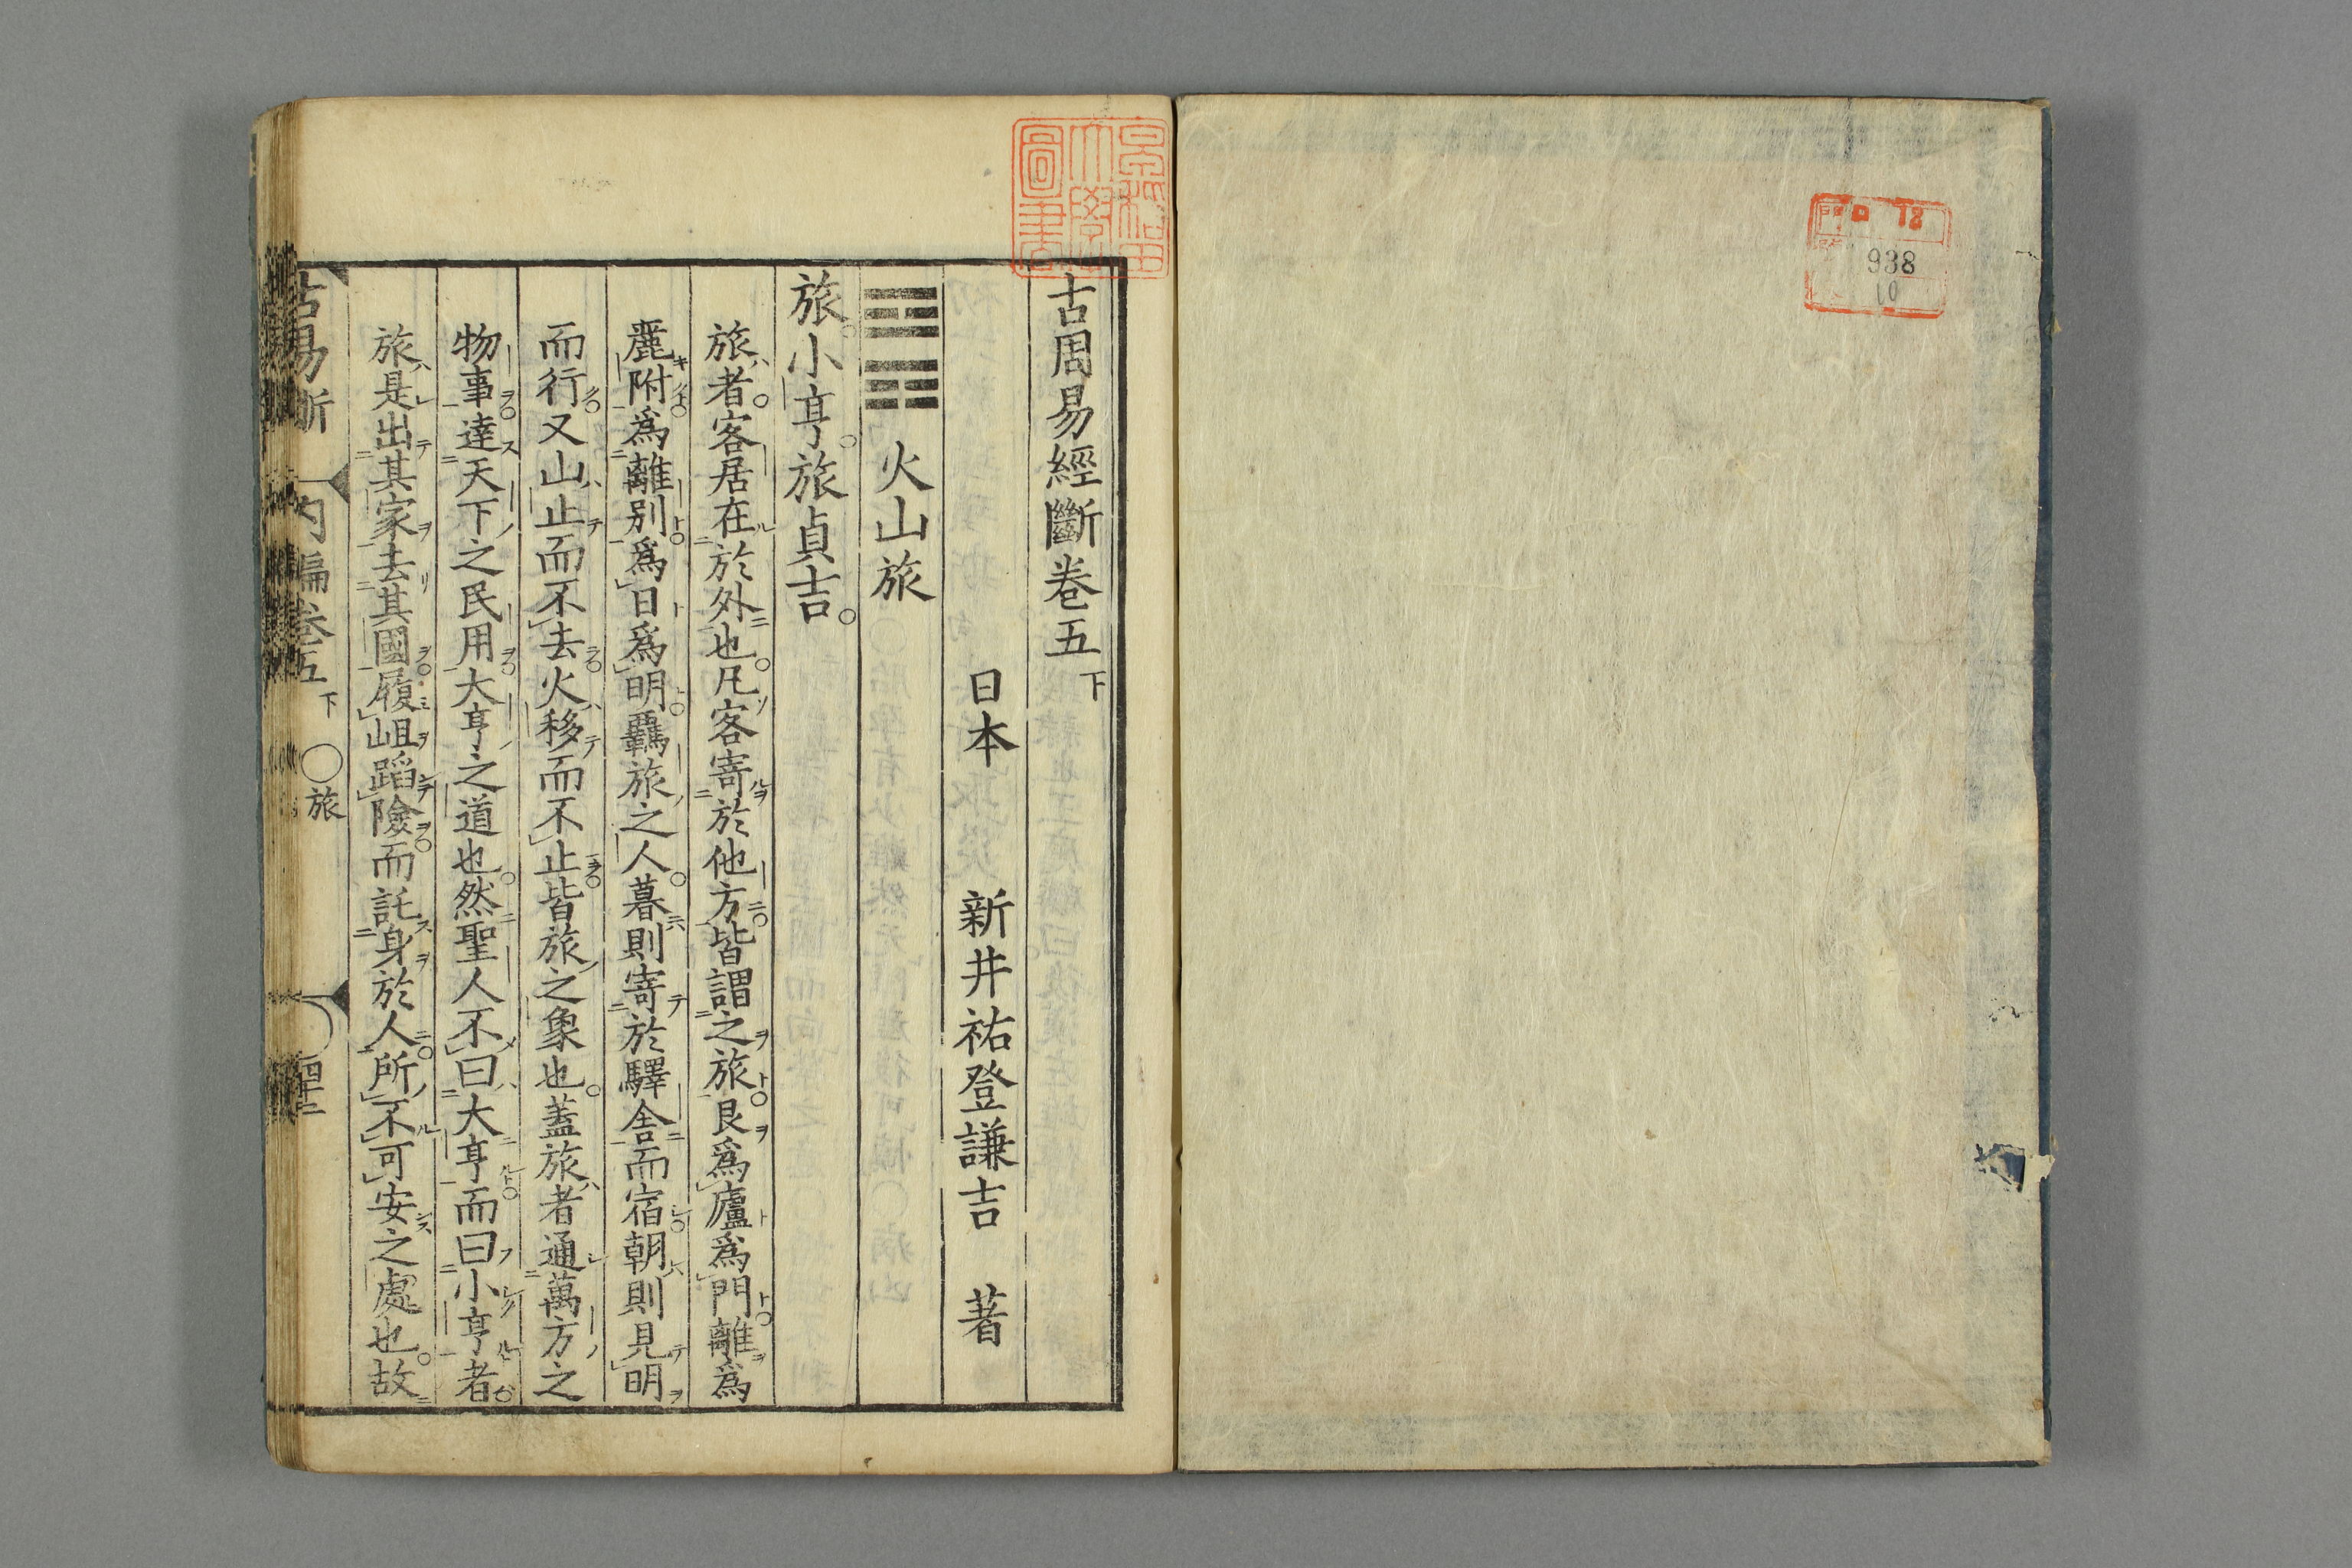 門 ロ 18
938
10
早稲田大學圖書
古周易經斷卷五下
日本 新井祐登謙吉 著
火山旅
旅。小亨。旅貞吉。
旅者。客居在於外也。凡客寄於他方。皆謂之旅。艮爲廬爲門。離爲
麗附。爲離別。爲日爲明。羈旅之人。暮則寄於驛舎而宿。朝則見明
而行。又山止而不去。火移而不止。皆旅之象也。蓋旅者通萬方之
物事。達天下之民用。大亨之道也。然聖人不曰大亨。而曰小亨者。
旅是出其家去其國。履岨蹈險。而託身於人。所不可安之處也。故
古易斷 内編卷五下 ○旅 四十二